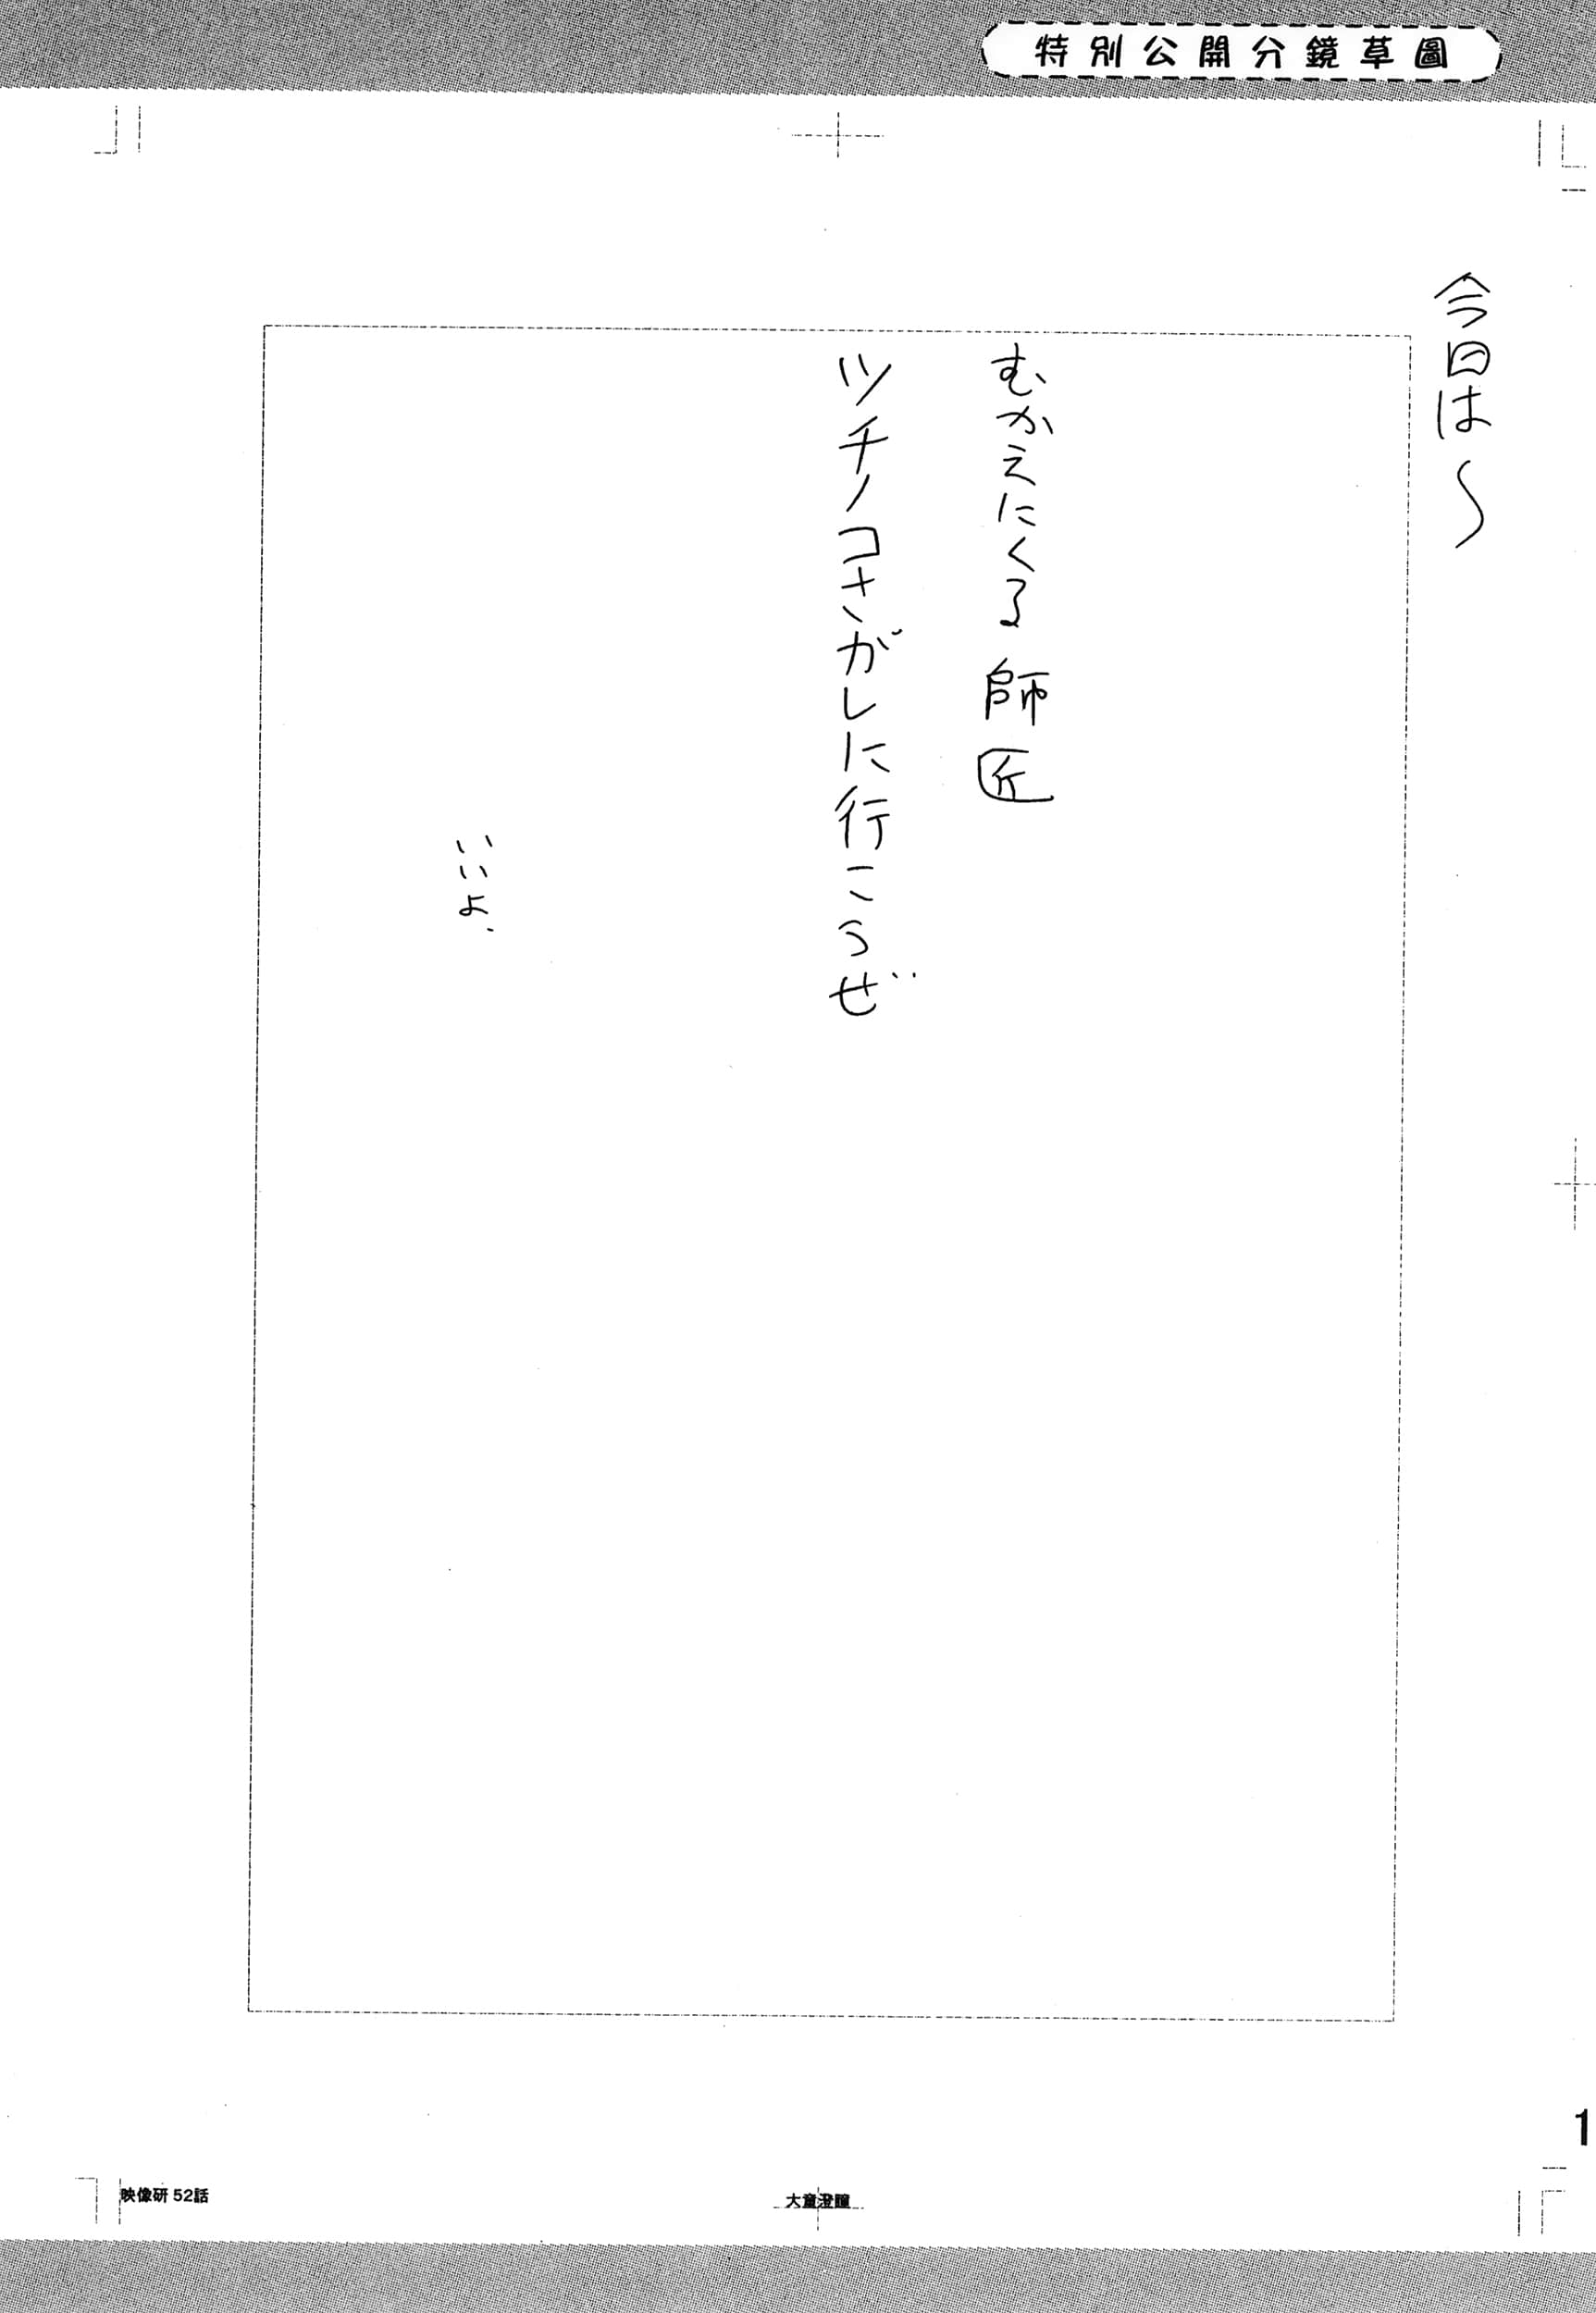 特別公開分鏡草圖
今日は〜
むかえにくる 師匠
ツチノコさがしに行こうぜ
いいよ、
1
映像研 52話
大童澄瞳